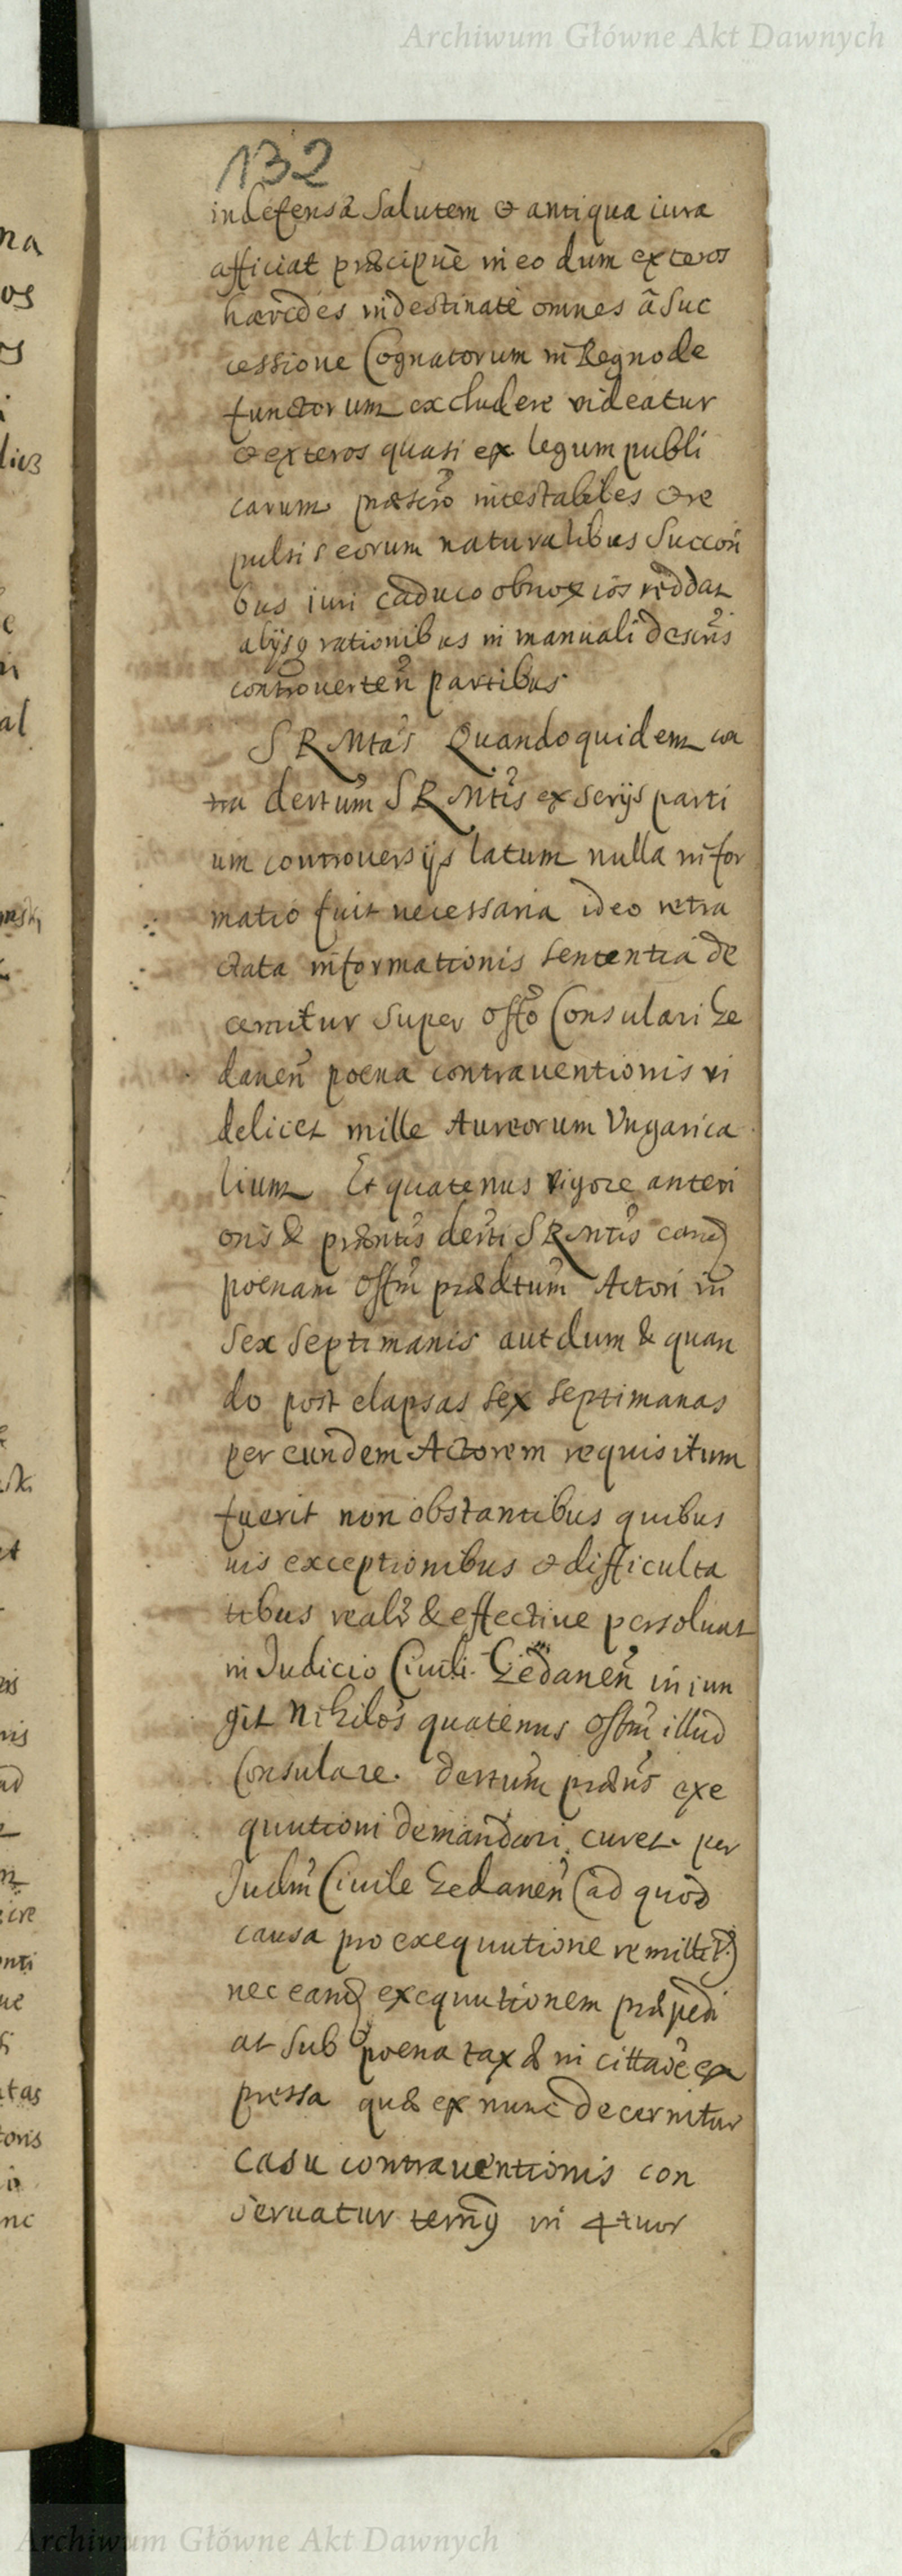 Archiwum Główne Akt Dawnych
132
indefensa Salutem & antiqua iura
afficiat præcipuè in eo dum exteros
hæredes indestinatè omnes à Suc
cessione Cognatorum in Regno de
functorum excludere videatur
& exteros quasi ex legum publi
carum præscrõ intestabiles & re
pulsis eorum naturalibus Succeñ
bus iuri caduco obnoxios reddat
alijsq rationibus in manuali descriis
controuerteñ partibus
S R Mtas Quandoquidem con
tra dectum S R Mtis ex serijs parti
um controuersijs latum nulla infor
matio fuit necessaria ideo retra
ctata informationis sententia de
cernitur super Offo Consulari Ge
daneñ poena contrauentionis vi
delicet mille Aureorum Vngarica
lium Et quatenus vigore anteri
oris & præntis decti S R Mtis eand
poenam Offm prædtum Actori in
Sex Septimanis aut dum & quan
do post elapsas Sex Septimanas
per eundem Actorem requisitum
fuerit non obstantibus quibus
uis exceptionibus & difficulta
tibus realr & effectiue persoluat
in Judicio Ciuili Gedaneñ iniun
git Nihilos quatenus Offm illud
Consulare dectum præns exe
quutioni demandari curet per
Judm Ciuile Gedaneñ (ad quod
causa pro exequutione remittit)
nec eand exequutionem præpedi
at Sub poena taxæ in citaõe ex
pressa quæ ex nunc decernitur
casu contrauentionis con
seruatur termq in 4tuor
Archiwum Główne Akt Dawnych